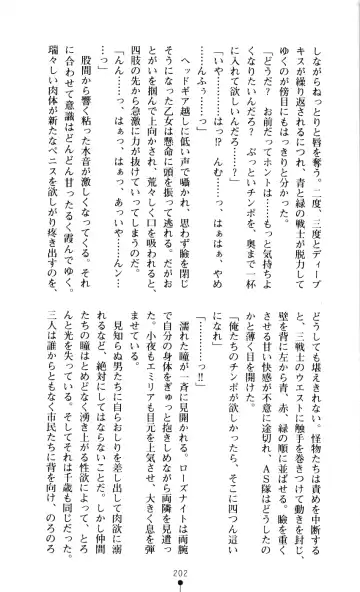 しながらねっとりと唇を奪う。二度、三度とディープ
キスが繰り返されるにつれ、青と緑の戦士が脱力して
ゆくのが傍目にもはっきりと分かった。
「どうだ？　お前だってホントは……もっと気持ちよ
くなりたいんだろ？　ぶっといチンポを、奥まで一杯
に入れて欲しいんだろ……？」
「いや……っ、はっ⁉　んむ……っ、はぁはぁ、やめ
……んふぅ……っ」
　ヘッドギア越しに低い声で囁かれ、思わず瞼を閉じ
そうになった乙女は懸命に頭を振って逃れる。だがお
とがいを掴んで上向かされ、荒々しく口を吸われると
四肢の先から急激に力が抜けていってしまうのだ。
「んん……っ、はぁっ、はぁっ、あっい、や……んン
……あっ」
　股間から響く粘った水音が激しくなってゆく。それ
に合わせて意識はどんどん甘ったるく霞んでゆく。
瑞々しい肉体が新たなペニスを欲しがり疼き出すのを、
どうしても堪えきれない。怪物たちは責めを中断する
と、三戦士のウエストに触手を巻きつけて動きを封じ、
壁を背に左から青、赤、緑の順に並ばせる。瞼を重く
させる甘い快感が不意に途切れ、ＡＳ隊はどうしたの
かと薄く目を開けた。
「俺たちのチンポが欲しかったら、そこに四つん這い
になれ」
「…………っ‼」
　濡れた瞳が一斉に見開かれる。ローズナイトは両腕
で自分の身体をぎゅっと抱きしめながら両隣を見遣っ
た。小夜もエミリアも目元を上気させ、大きく息を弾
ませている。
　見知らぬ男たちに自らおしりを差し出して肉欲に溺
れるなど、絶対にしてはならないことだ。しかし仲間
たちの瞳はとめどなく湧き上がる性欲によって、とろ
んと光を失っている。そしてそれは千歳も同じだった。
三人は誰からともなく市民たちに背を向け、のろのろ
202